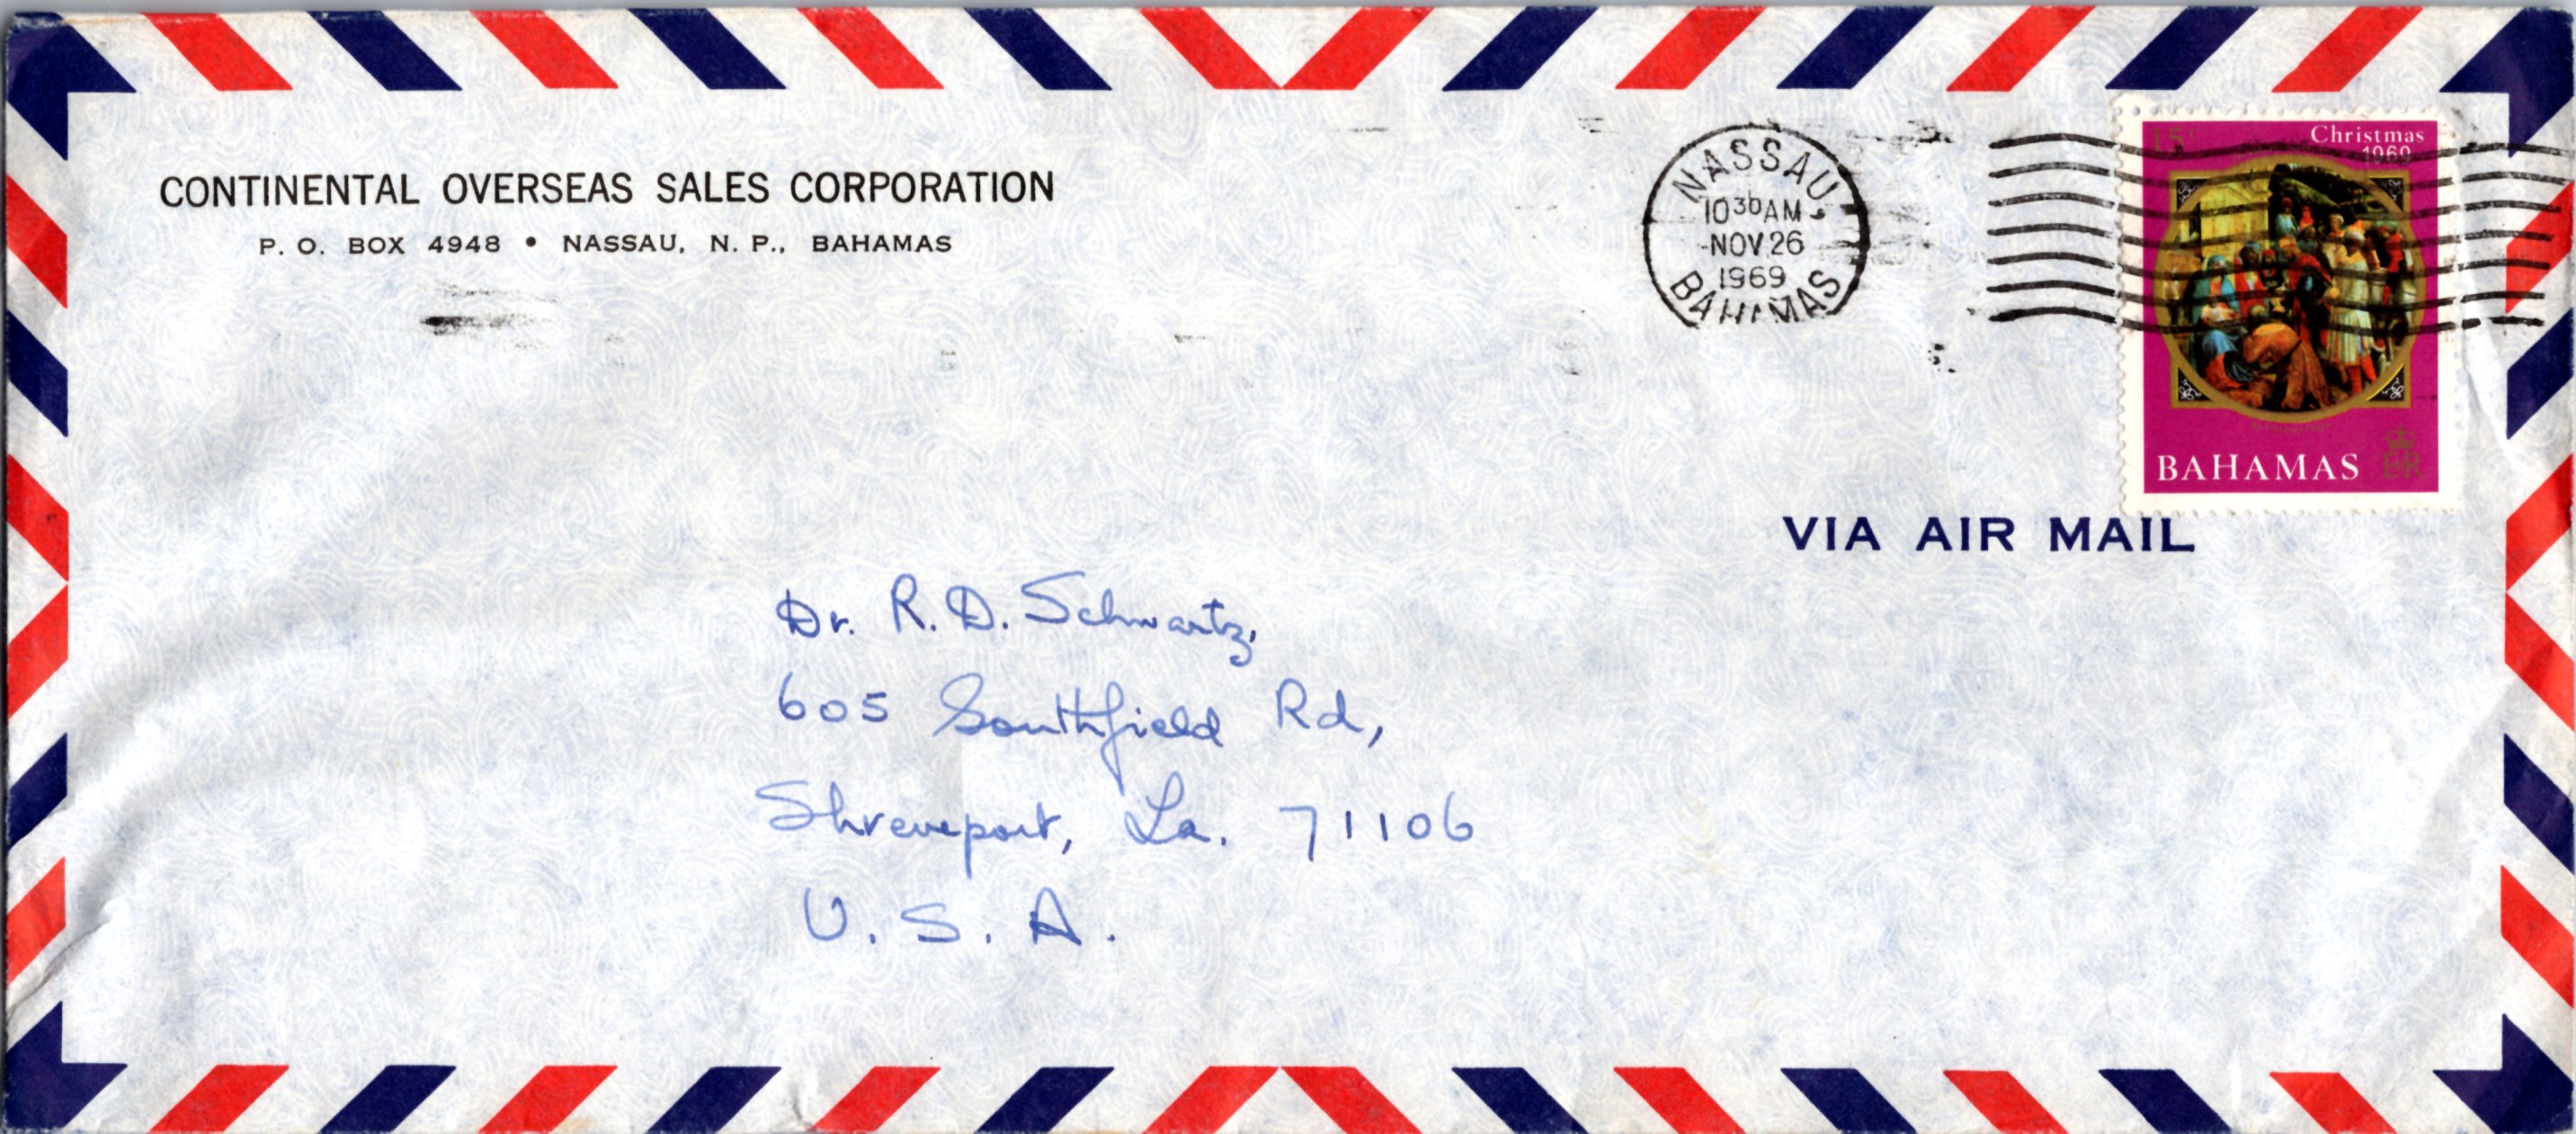 CONTINENTAL OVERSEAS SALES CORPORATION
P. O. BOX 4948 • NASSAU, N. P., BAHAMAS
NASSAU
10 30 AM
NOV. 26
1969
BAHAMAS
15c
Christmas
1969
BAHAMAS
EIIR
VIA AIR MAIL
Dr. R. D. Schwartz,
605 Southfield Rd,
Shreveport, La. 71106
U. S. A.